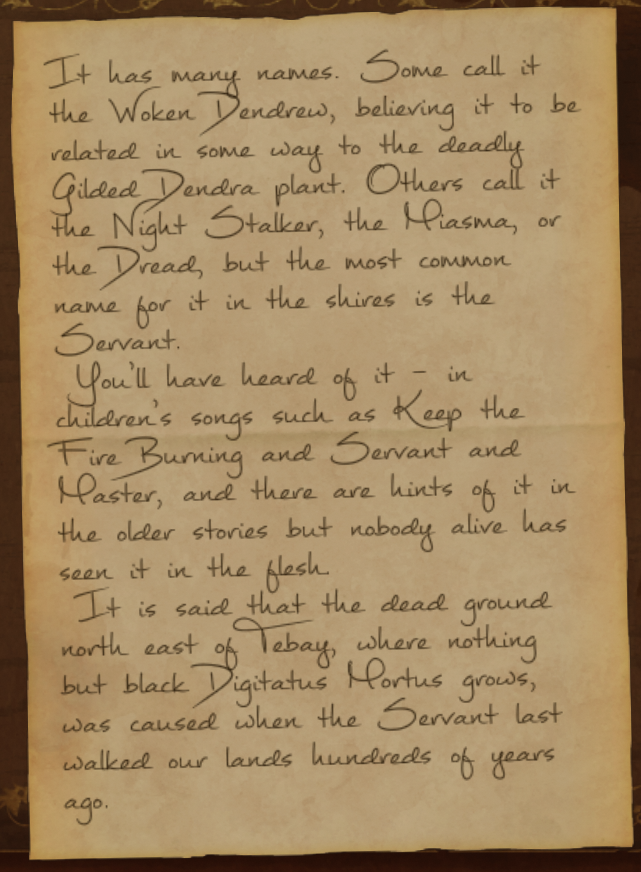 It has many names. Some call it
the Woken Dendrew, believing it to be
related in some way to the deadly
Gilded Dendra plant. Others call it
the Night Stalker, the Miasma, or
the Dread, but the most common
name for it in the shires is the
Servant.
You'll have heard of it - in
children's songs such as Keep the
Fire Burning and Servant and
Master, and there are hints of it in
the older stories but nobody alive has
seen it in the flesh.
It is said that the dead ground
north east of Tebay, where nothing
but black Digitatus Mortus grows,
was caused when the Servant last
walked our lands hundreds of years
ago.